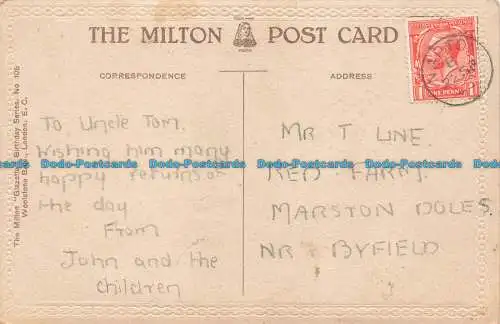 THE MILTON POST CARD
CORRESPONDENCE
ADDRESS
ONE PENNY
To Uncle Tom.
Wishing him many
happy returns of
the day
From
John and the
children
MR T LINE
RED FARM
MARSTON DOLES
NR BYFIELD
The Milton "Glazette" Birthday Series. No. 105
Woolstone Bros., London, E.C.
Dodo-Postcards Dodo-Postcards Dodo-Postcards Dodo-Postcards